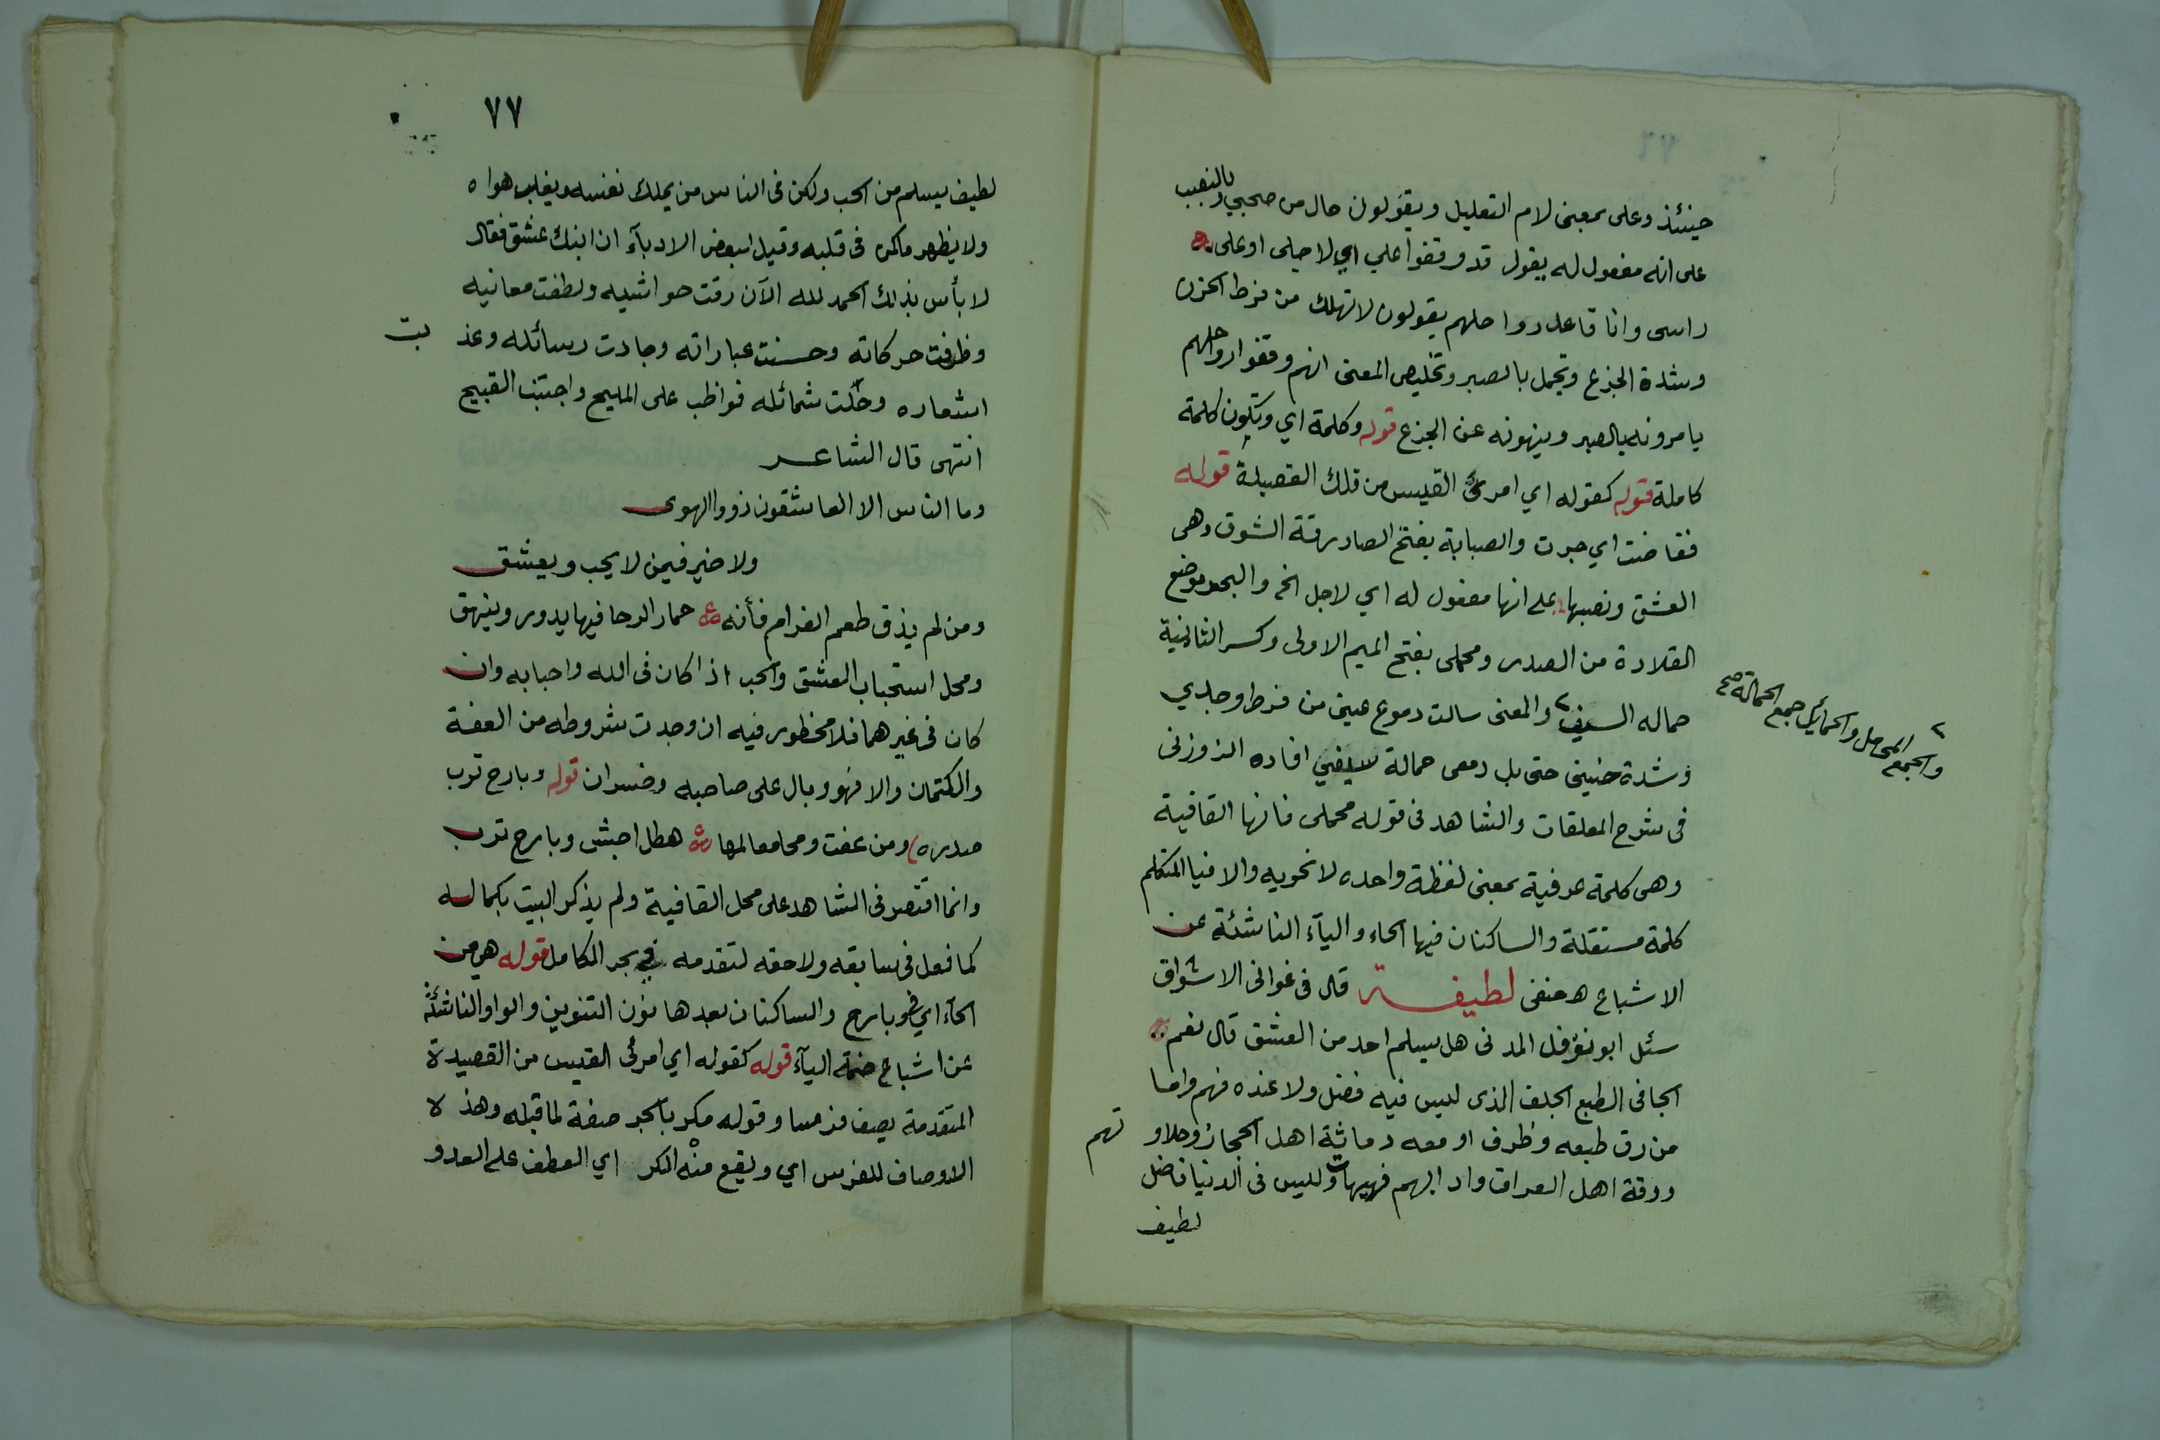 حينئذ وعلى بمعنى لام التعليل ويقولون حال من صحبي وبالنصب
على انه مفعول له يقول قد وقفوا علي اي لاجلي او على
راسى وانا قاعد رواحلهم يقولون لا تهلك من فرط الحزن
وشدة الجزع وتجمل بالصبر وتخليص المعنى انهم وقفوا رواحلهم
يامرونه بالصبر وينهونه عن الجزع قوله وكلمة اي وتكون كلمة
كاملة قوله كقوله اي امرئ القيس من تلك القصيدة قوله
ففاضت اي جرت والصبابة بفتح الصاد رقة الشوق وهى
العشق ونصبها على انها مفعول له اي لاجل الخ والبحر موضع
القلادة من الصدر ومحملى بفتح الميم الاولى وكسر الثانية
حماله السيف والمعنى سالت دموع عينى من فرط وجدي
وشدة حنينى حتى بل دمعى حمالة سيفي افاده الزوزنى
فى شرح المعلقات والشاهد فى قوله محملى فانها القافية
وهى كلمة عرفية بمعنى لفظة واحده لا نحويه والا فيا المتكلم
كلمة مستقلة والساكنان فيها الحاء واليآء الناشئة عن
الاشباع ه حنفى لطيفة قال فى غوانى الاشواق
سئل ابو نوفل المدنى هل يسلم احد من العشق قال نعم
الجافى الطبع الجلف الذى ليس فيه فضل ولا عنده فهم واما
من رق طبعه وظرف او معه دماثة اهل الحجاز وحلاو تهم
ورقة اهل العراق وادابهم فهيهات وليس فى الدنيا فاضل
لطيف
والجمع المحامل والحمائل جمع الحمالة صح
٧٧
لطيف يسلم من الحب ولكن فى الناس من يملك نفسه ويغلب هواه
ولا يظهر ما كمن فى قلبه وقيل لبعض الادبآء ان ابنك عشق فقال
لا بأس بذلك الحمد لله الآن رقت حواشيه ولطفت معانيه
وظرفت حركاته وحسنت عباراته وجادت رسائله وعذ بت
اشعاره وحلت شمائله فواظب على المليح واجتنب القبيح
انتهى قال الشاعر
وما الناس الا العاشقون ذووا الهوى
ولا خير فيمن لا يحب ويعشق
ومن لم يذق طعم الغرام فأنه حمار الرحا فيها يدور وينهق
ومحل استحباب العشق والحب اذا كان فى الله واحبابه وان
كان فى غيرهما فلا محظور فيه ان وجدت شروطه من العفة
والكتمان والا فهو وبال على صاحبه وخسران قوله وبارح ترب
صدره ومن عفت ومحا معالمها هطل اجش وبارح ترب
وانما اقتصر فى الشاهد على محل القافية ولم يذكر البيت بكماله
كما فعل فى سابقه ولاحقه لتقدمه فى بحر الكامل قوله هى من
الحآء اي وبارح والساكنان بعدها نون التنوين والواو الناشئة
عن اشباع ضمة اليآء قوله كقوله اي امرئ القيس من القصيدة
المتقدمة يصف فرسا وقوله مكر بالجر صفة لما قبله وهذ لا
الاوصاف للفرس اي ويقع منه الكر اي العطف على العدو